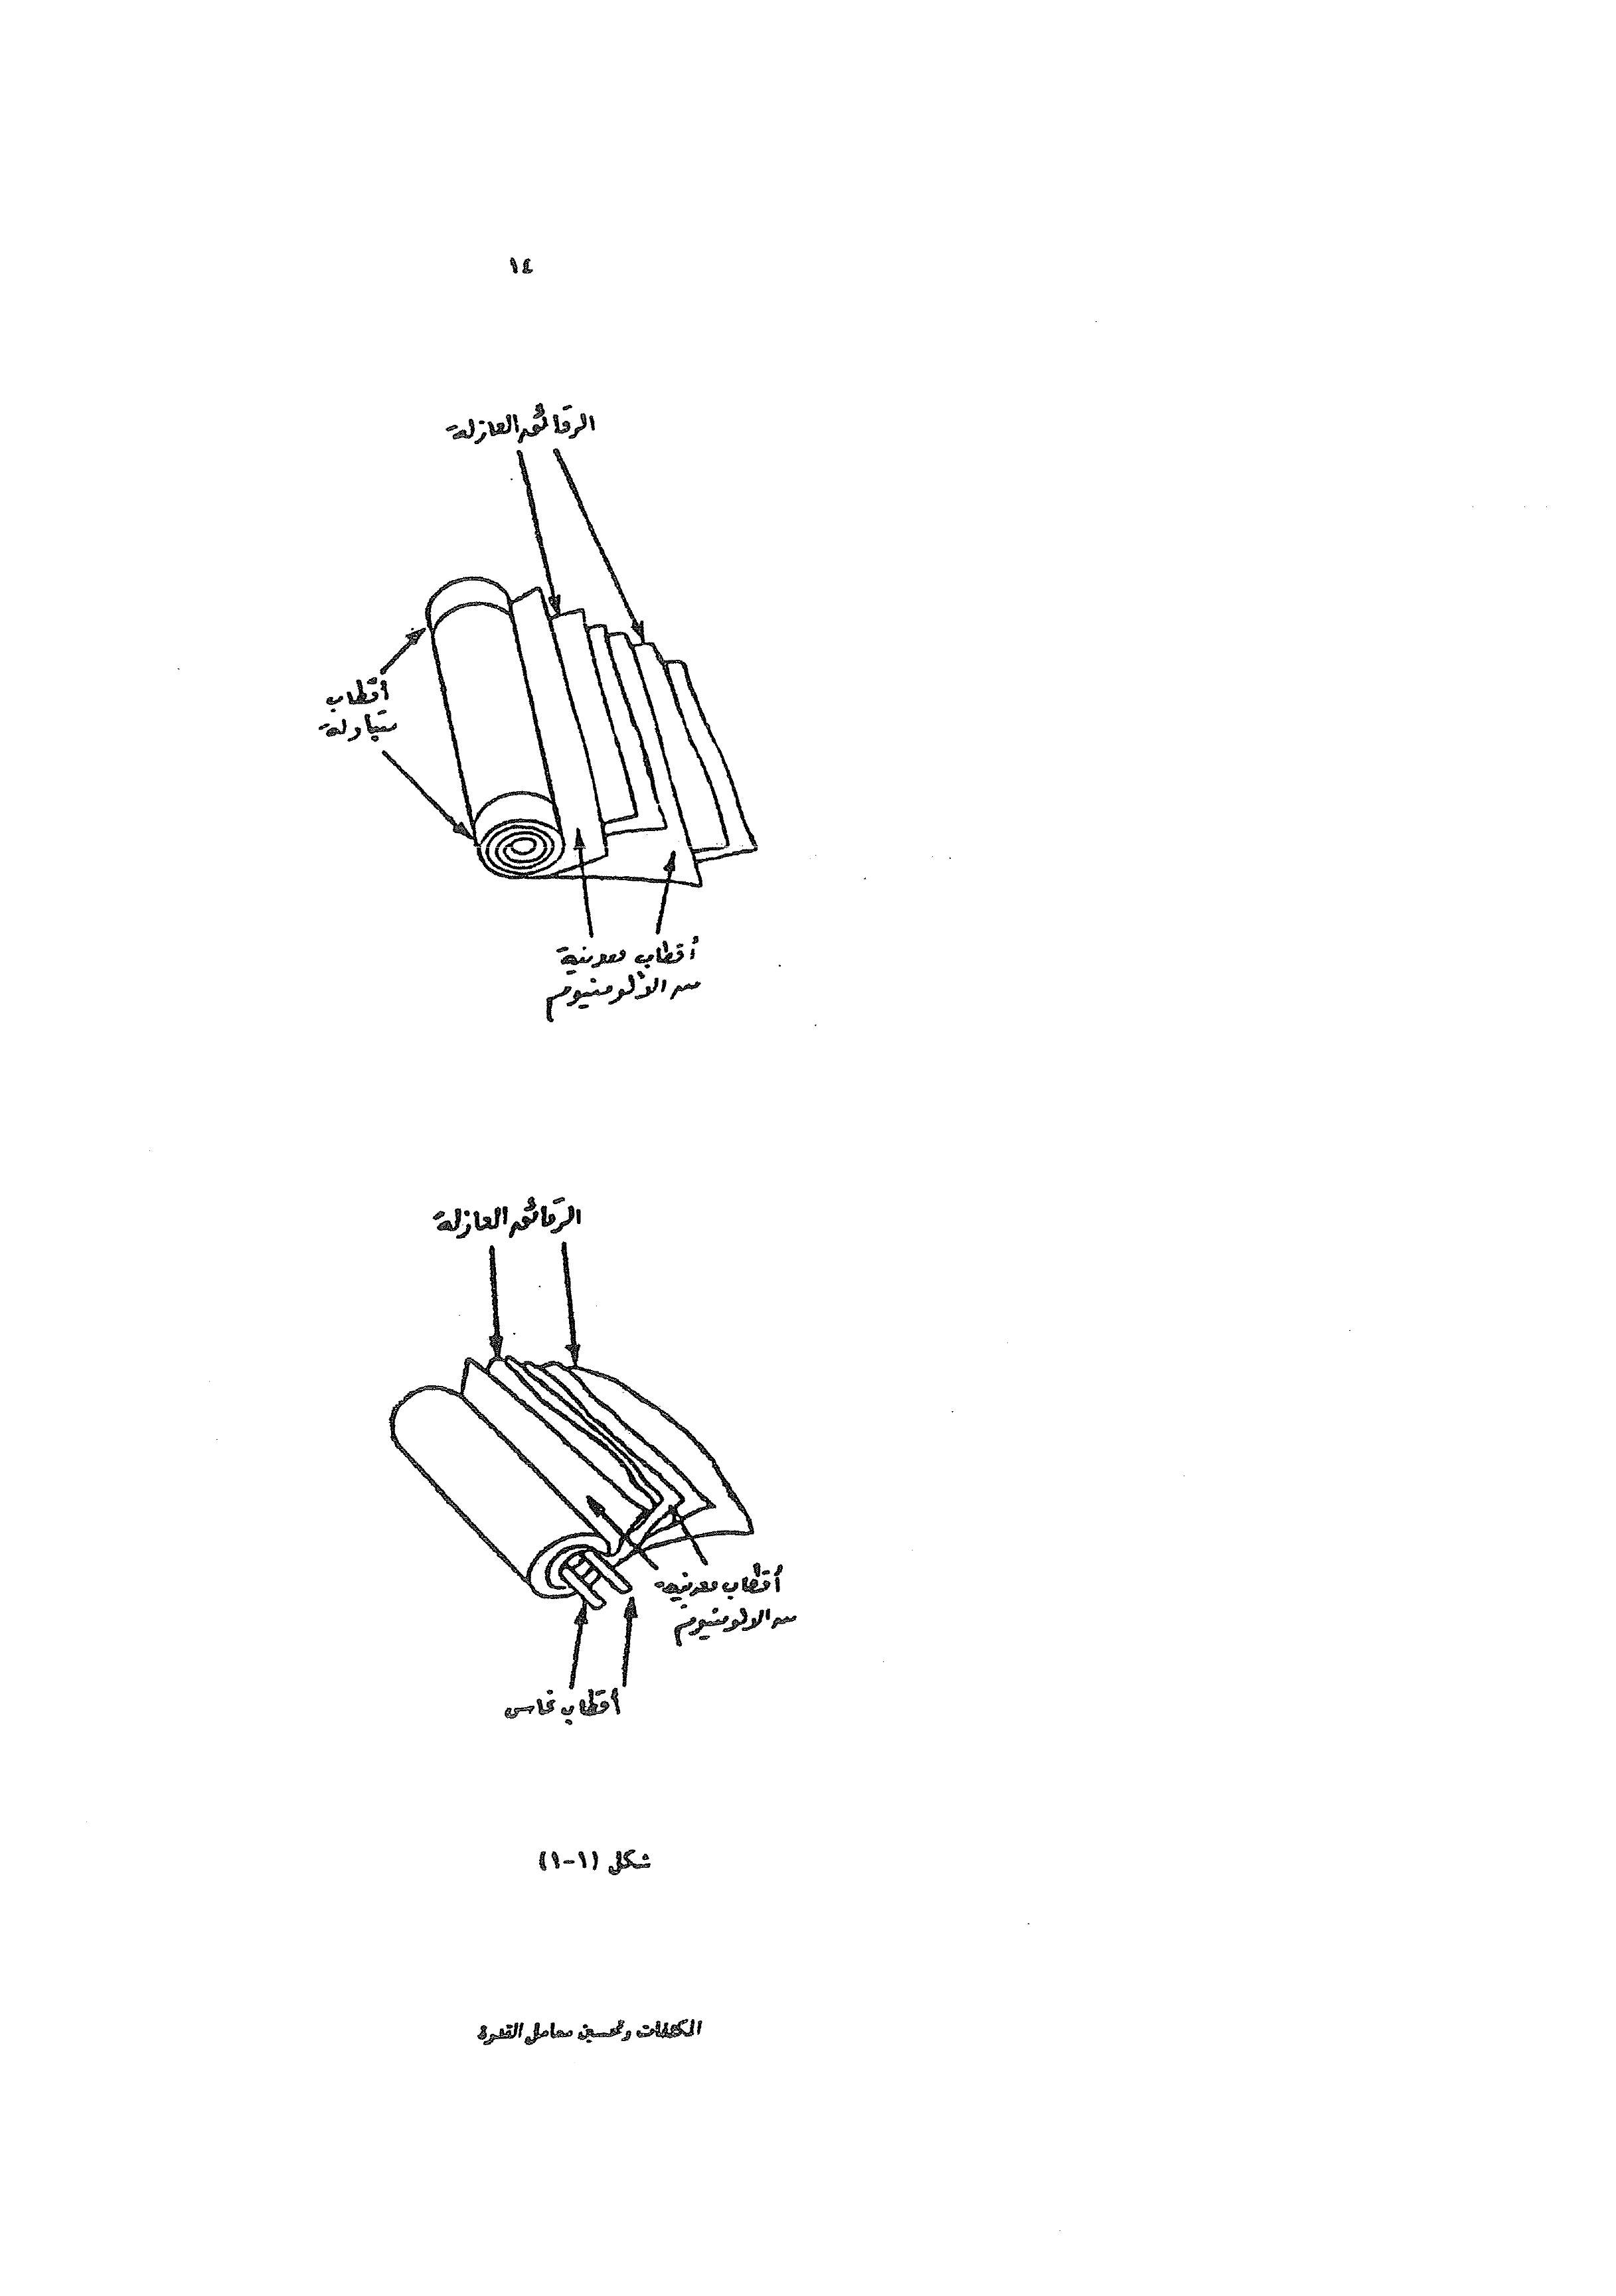 ١٤
الرقائق العازلة
أقطاب
متبادلة
أقطاب معدنية
من الألومنيوم
الرقائق العازلة
أقطاب معدنية
من الألومنيوم
أقطاب نحاس
شكل (١-١)
المكثفات وتحسين معامل القدرة